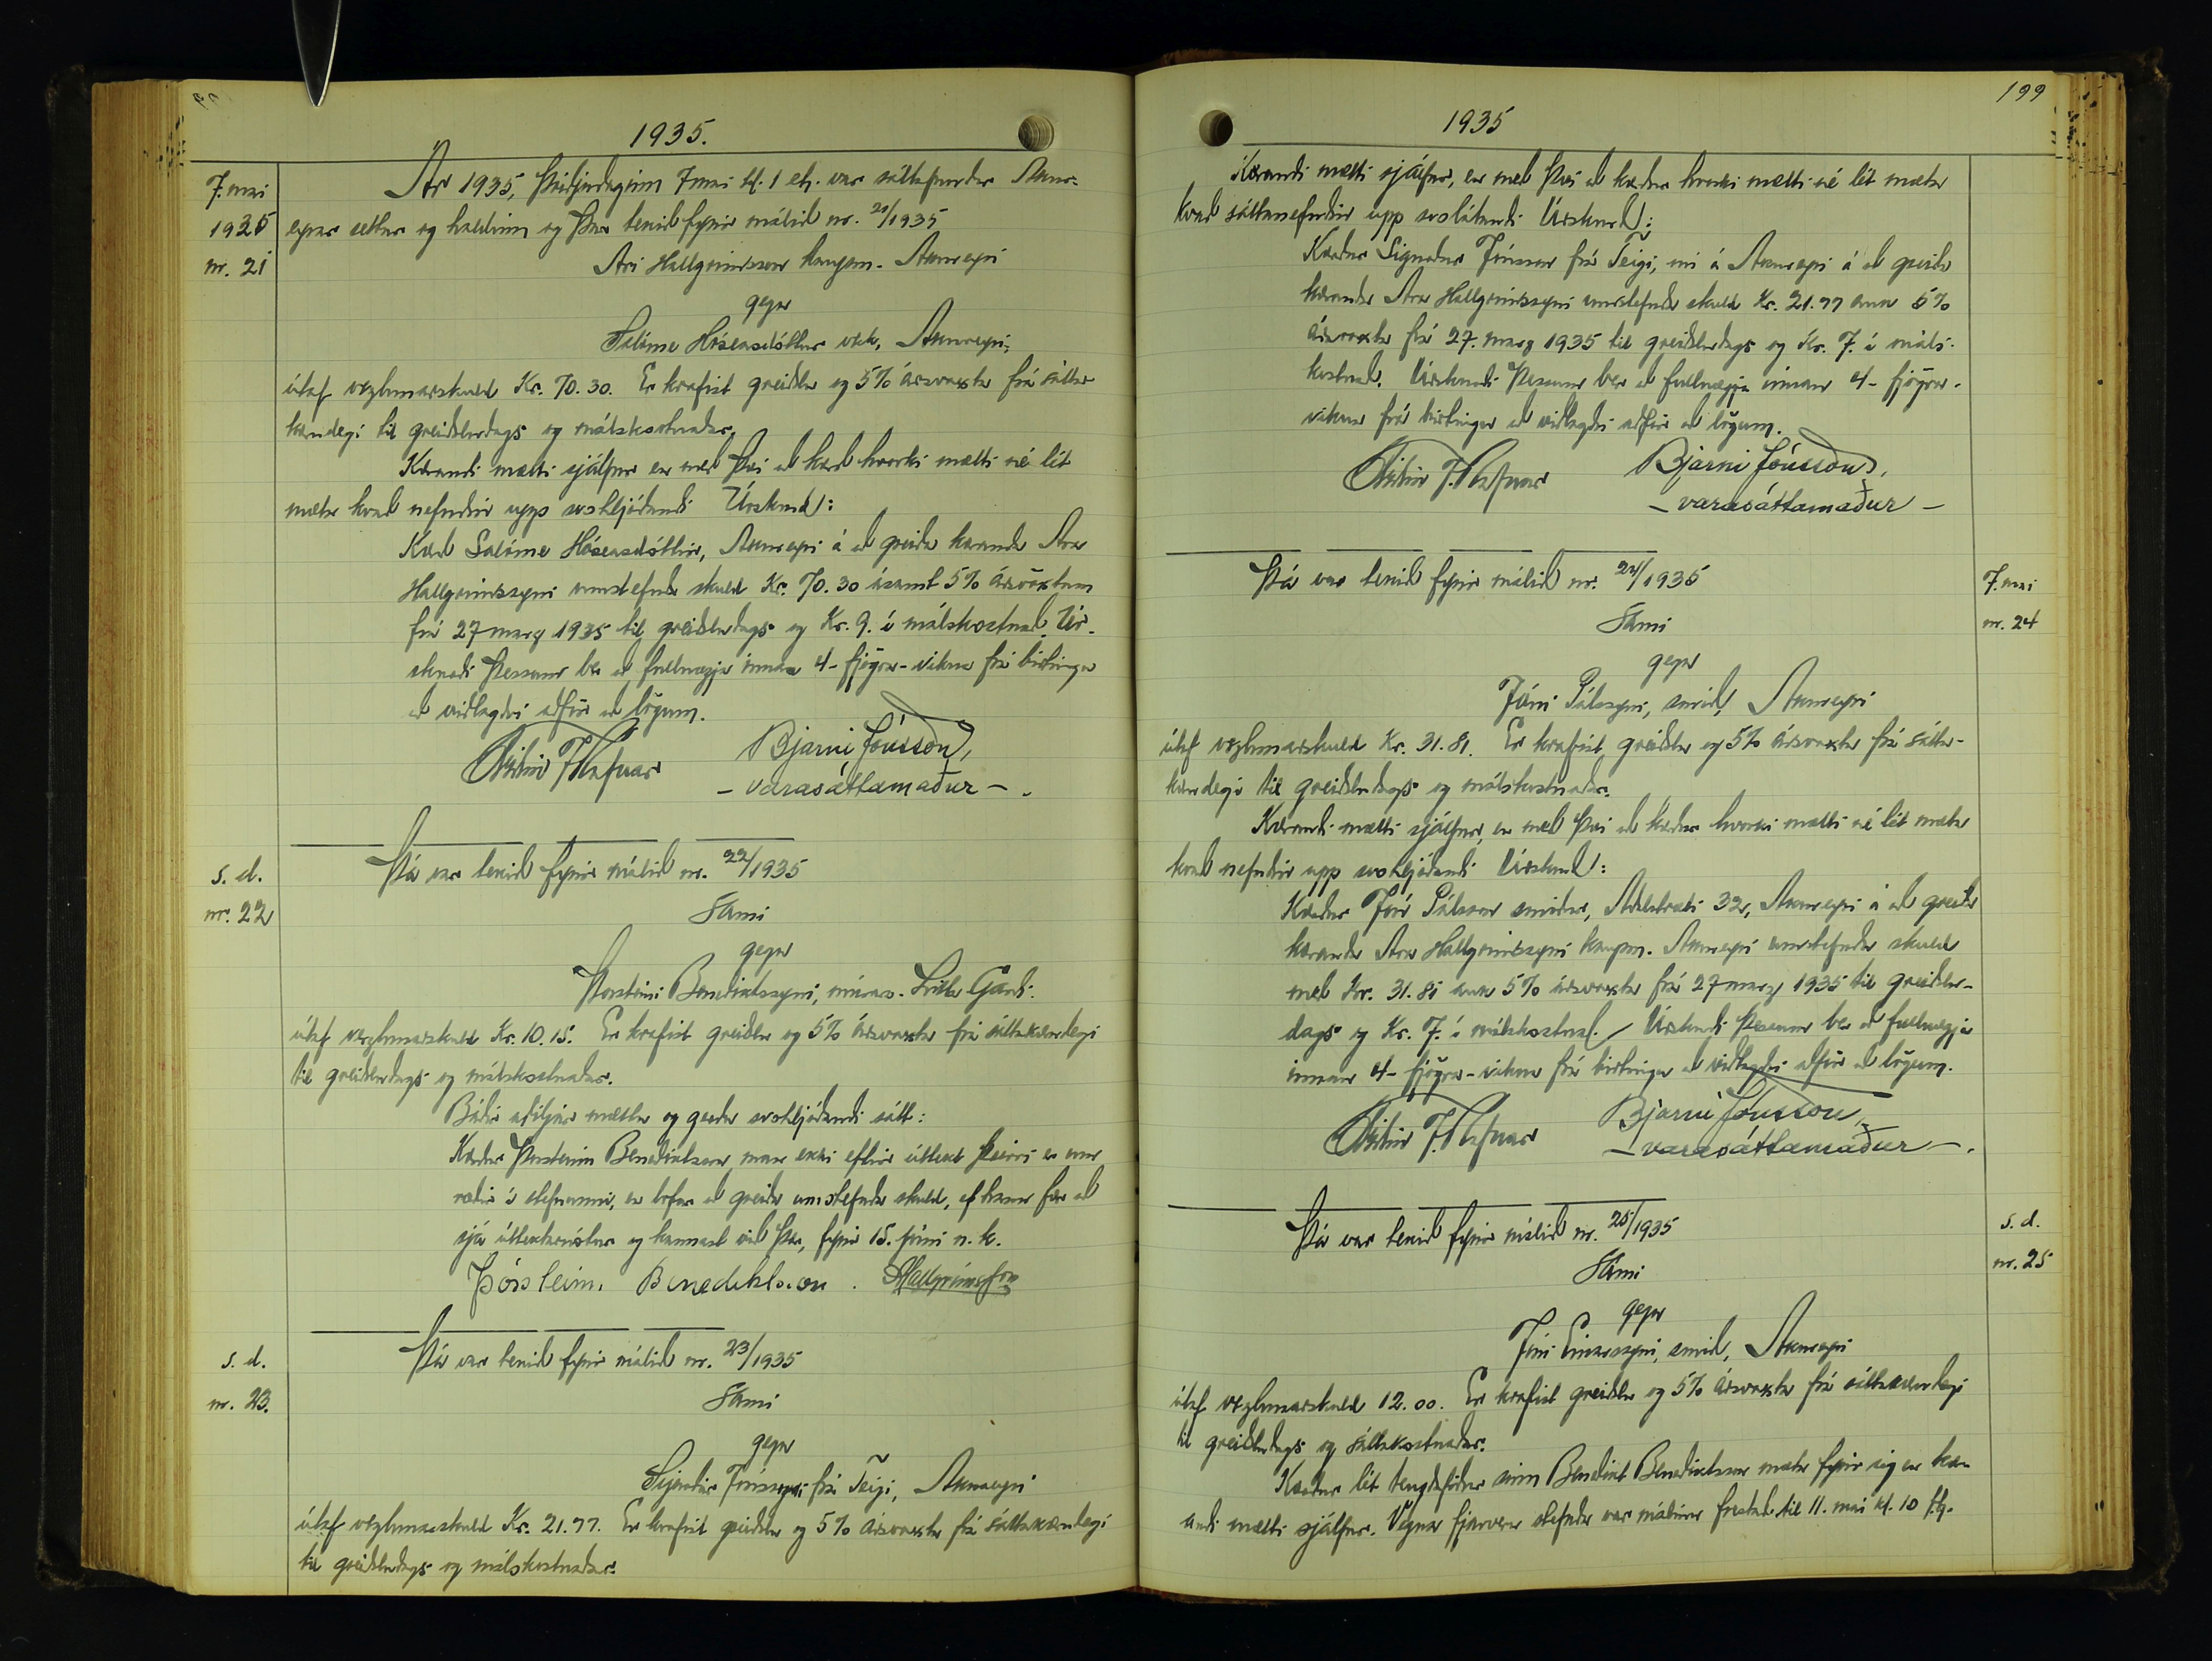 1935.
7. maí
1935
nr. 21
Ár 1935, þriðjudaginn 7 maí kl. 1 eh. var sáttafundur Akur-
eyrar settur og haldinn og þar tekið fyrir málið nr. 21/1935
Ari Hallgrímsson kaupm. Akureyri
gegn
Salóme Hóseasdóttur Akureyri,
útaf verzlunarskuld Kr. 70.30. Er krafist greiðslu og 5% ársvaxta frá sátta-
kærudegi til greiðsludags og málskostnaðar.
Kærandi mætti sjálfur en með því að kærð hvorki mætti né lét
mæta kvað nefndin upp svohljóðandi Úrskurð:
Kærð Salóme Hóseasdóttir, Akureyri á að greiða kæranda Ara
Hallgrímssyni umstefnda skuld Kr. 70.30 ásamt 5% ársvöxtum
frá 27 marz 1935 til greiðsludags og Kr. 9. í málskostnað. Úr-
skurði þessum ber að fullnægja innan 4 - fjögra - vikna frá birtingu
að viðlagðri aðför að lögum.
Bjarni Jónsson,
- varasáttamaður - .
s. d.
nr. 22
Þá var tekið fyrir málið nr. 22/1935
Sami
gegn
Þorsteini Benediktssyni, Litla Garði.
útaf verzlunarskuld Kr. 10.15. Er krafist greiðslu og 5% ársvaxta frá sáttakærudegi
til greiðsludags og málskostnaðar.
Báðir aðiljar mættu og gerðu svohljóðandi sátt:
Kærður Þorsteinn Benediktsson man ekki eftir úttekt þeirri er um
ræðir í stefnunni, en lofar að greiða umstefnda skuld, ef hann fær að
sjá úttektarnótur og kannast við þær, fyrir 15. júní n. k.
Þórsteinn Benediktsson. AHallgrímsson
s. d.
nr. 23.
Þá var tekið fyrir málið nr. 23/1935
Sami
gegn
Sigurður Jónssyni frá Teigi, Akureyri
útaf verzlunarskuld Kr. 21.77. Er krafist greiðslu og 5% ársvaxta frá sáttakærudegi
til greiðsludags og málskostnaðar.
199
1935
Kærandi mætti sjálfur, en með því að kærður hvorki mætti né lét mæta
kvað sáttanefndin upp svolátandi Úrskurð:
Kærður Sigurður Jónsson frá Teigi, nú á Akureyri á að greiða
kæranda Ara Hallgrímssyni umstefnda skuld Kr. 21.77 auk 5%
ársvaxta frá 27. marz 1935 til greiðsludags og Kr. 7. í máls-
kostnað. Úrskurði þessum ber að fullnægja innan 4 - fjögra -
vikna frá birtingu að viðlagðri aðför að lögum.
Bjarni Jónsson,
- varasáttamaður -
7. maí
nr. 24
Þá var tekið fyrir málið nr. 24/1935
Sami
gegn
Jóni Pálssyni, smið, Akureyri
útaf verzlunarskuld Kr. 31.81. Er krafist greiðslu og 5% ársvaxta frá sátta-
kærudegi til greiðsludags og málskostnaðar.
Kærandi mætti sjálfur, en með því að kærður hvorki mætti né lét mæta
kvað nefndin upp svohljóðandi Úrskurð:
Kærður Jón Pálsson smiður, Aðalstræti 32, Akureyri á að greiða
kæranda Ara Hallgrímssyni kaupm. Akureyri umstefnda skuld
með Kr. 31.81 auk 5% ársvaxta frá 27 marz 1935 til greiðslu-
dags og Kr. 7. í málskostnað. Úrskurði þessum ber að fullnægja
innan 4 - fjögra - vikna frá birtingu að viðlagðri aðför að lögum.
Bjarni Jónsson,
- varasáttamaður - .
s. d.
nr. 25
Þá var tekið fyrir málið nr. 25/1935
Sami
gegn
Jóni Einarssyni, smið, Akureyri
útaf verzlunarskuld 12.00. Er krafist greiðslu og 5% ársvaxta frá sáttakærudegi
til greiðsludags og sáttakostnaðar.
Kærður lét tengdaföður sinn Benedikt Benediktsson mæta fyrir sig en kær-
andi mætti sjálfur. Vegna fjarveru stefnda var málinu frestað til 11. maí kl. 10 f.h.